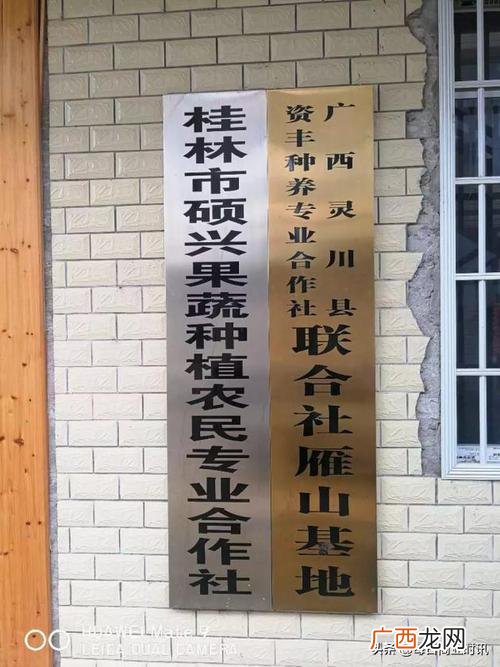 桂林市硕兴果蔬种植农民专业合作社
广西灵川县
资丰种养专业合作社
联合社雁山基地
HUAWEI Mate 9
LEICA DUAL CAMERA
头条
广西龙网